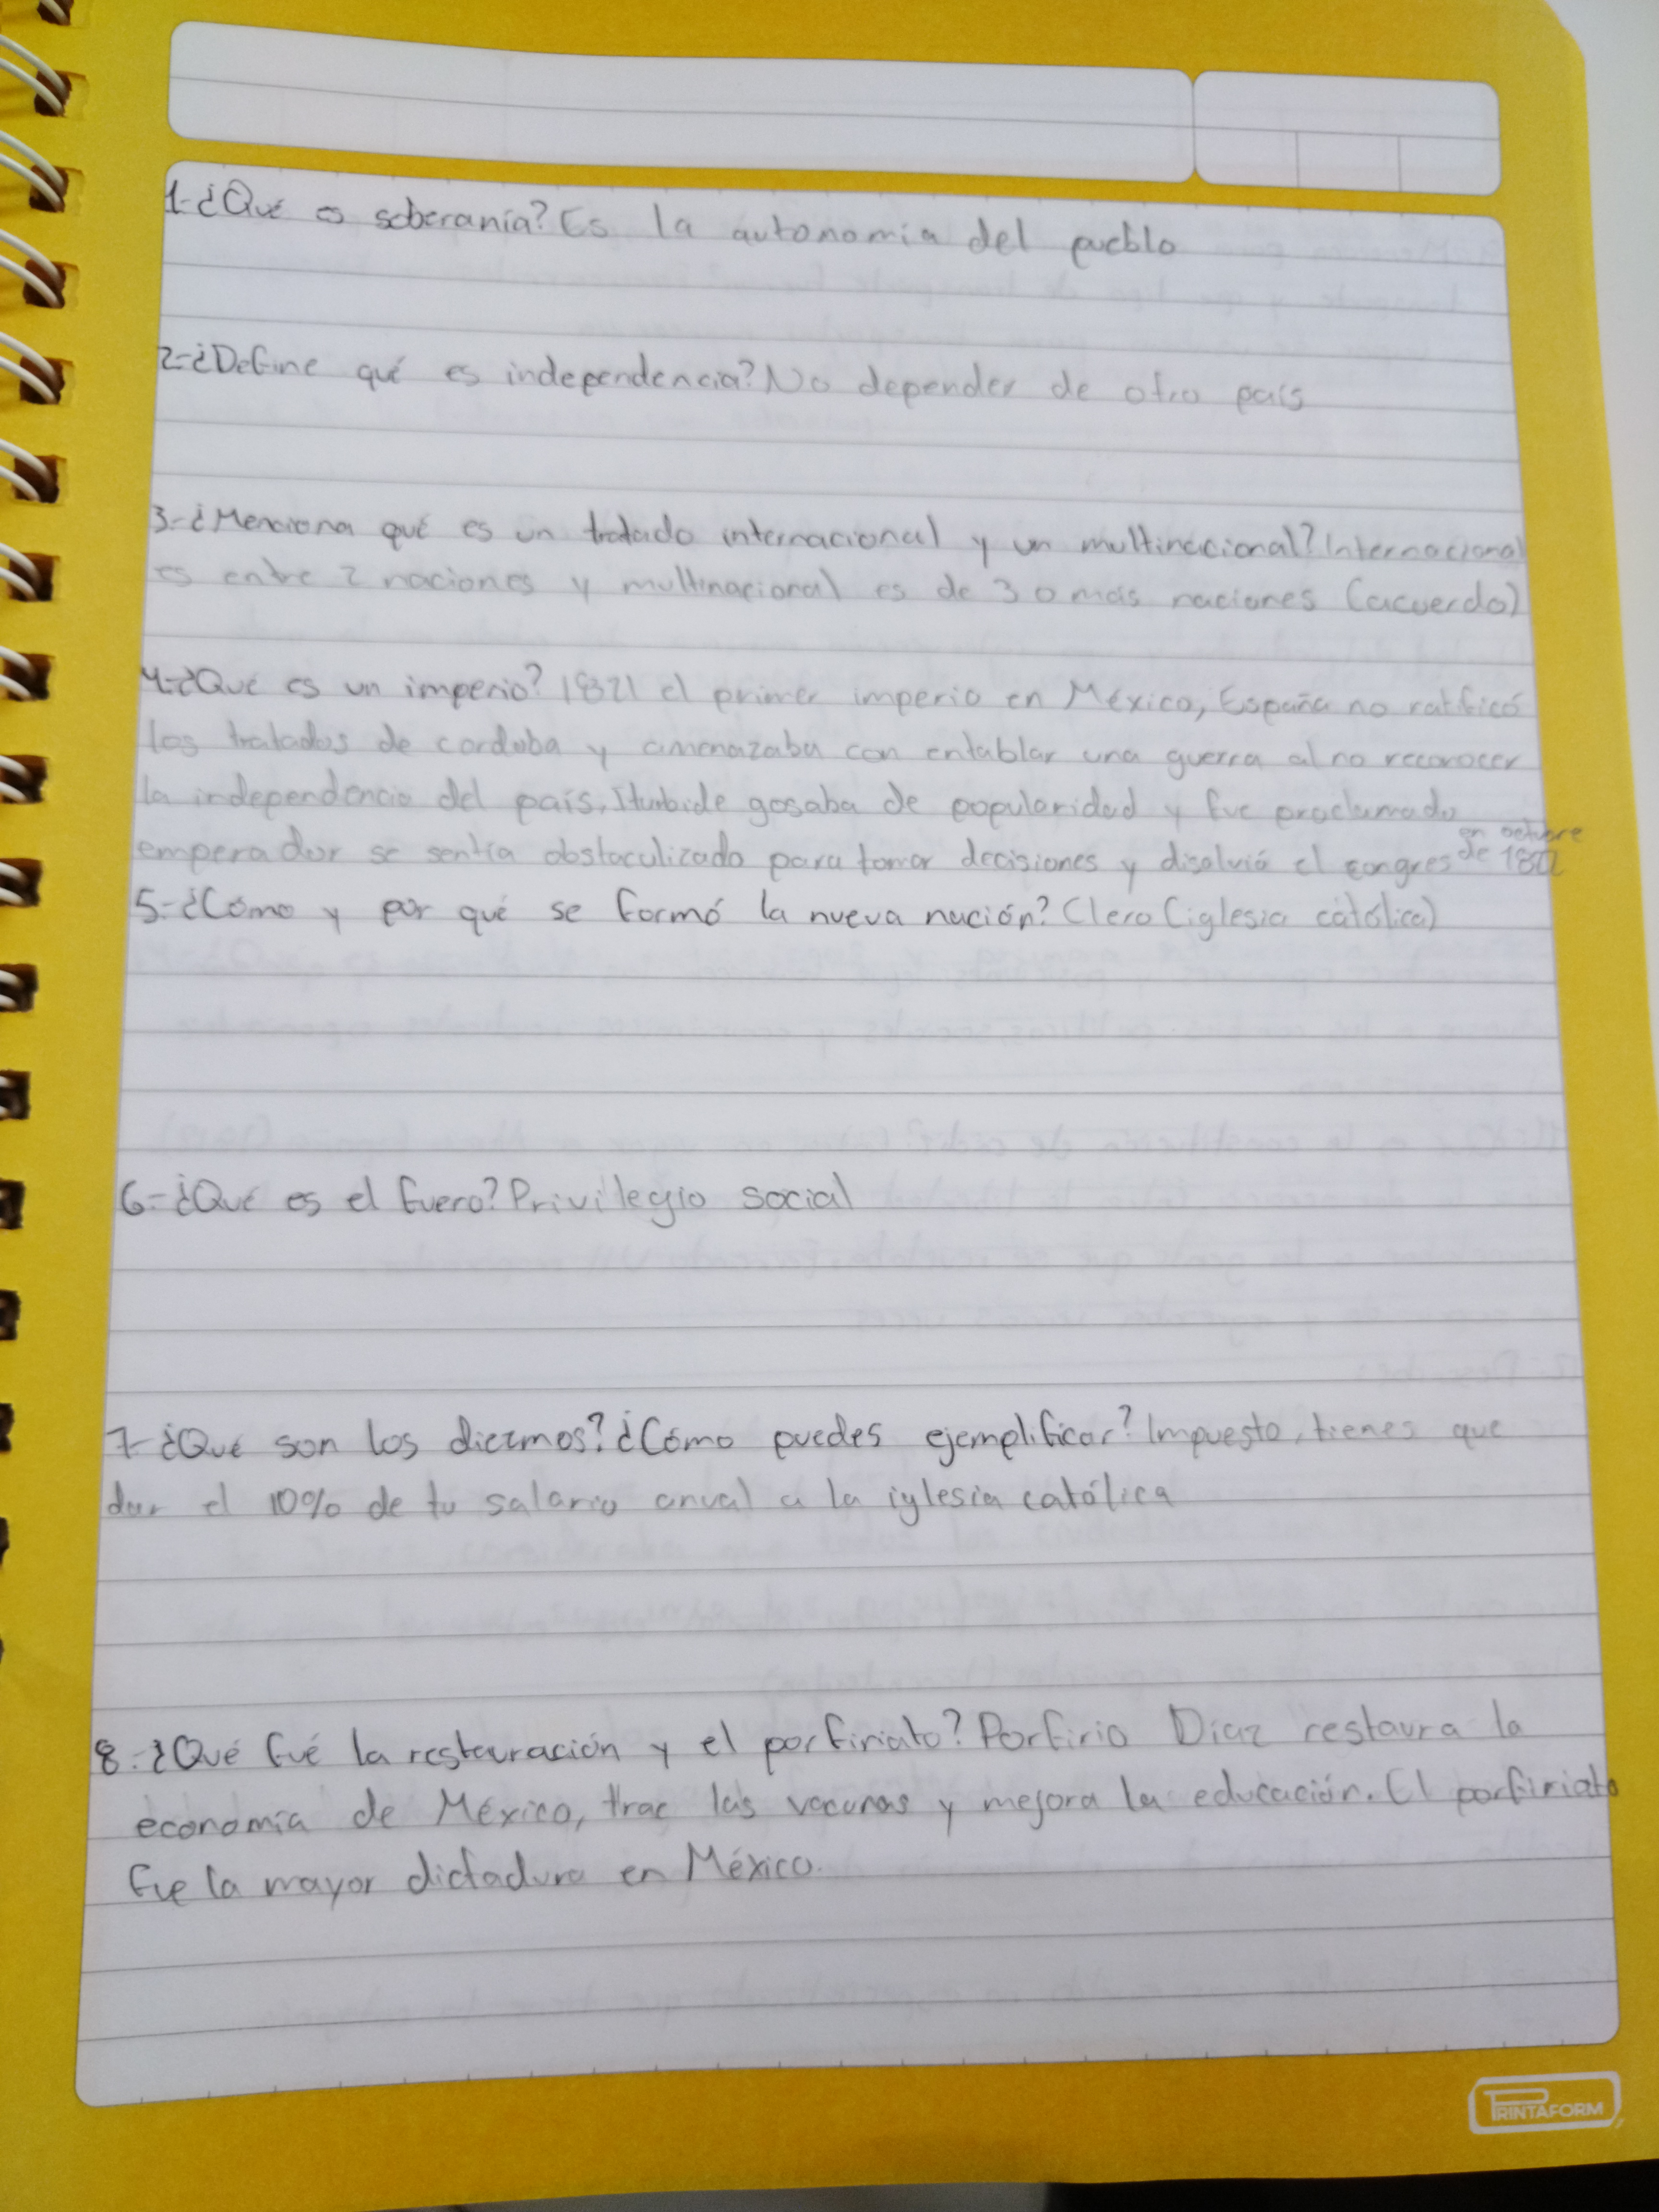 1-¿Qué es soberanía? Es la autonomía del pueblo
2-¿Define qué es independencia? No depender de otro país
3-¿Menciona qué es un tratado internacional y un multinacional? Internacional
es entre 2 naciones y multinacional es de 3 o más naciones (acuerdo)
4-¿Qué es un imperio? 1821 el primer imperio en México, España no ratificó
los tratados de cordoba y amenazaba con entablar una guerra al no reconocer
la independencia del país, Iturbide gosaba de popularidad y fue proclamado
emperador se sentía obstaculizado para tomar decisiones y disolvió el congres en octubre de 1822
5-¿Cómo y por qué se formó la nueva nación? Clero (iglesia católica)
6-¿Qué es el fuero? Privilegio social
7-¿Qué son los diezmos? ¿Cómo puedes ejemplificar? Impuesto, tienes que
dar el 10% de tu salario anual a la iglesia católica
8-¿Qué fué la restauración y el porfiriato? Porfirio Díaz restaura la
economía de México, trae las vacunas y mejora la educación. El porfiriato
fue la mayor dictadura en México.
PRINTAFORM